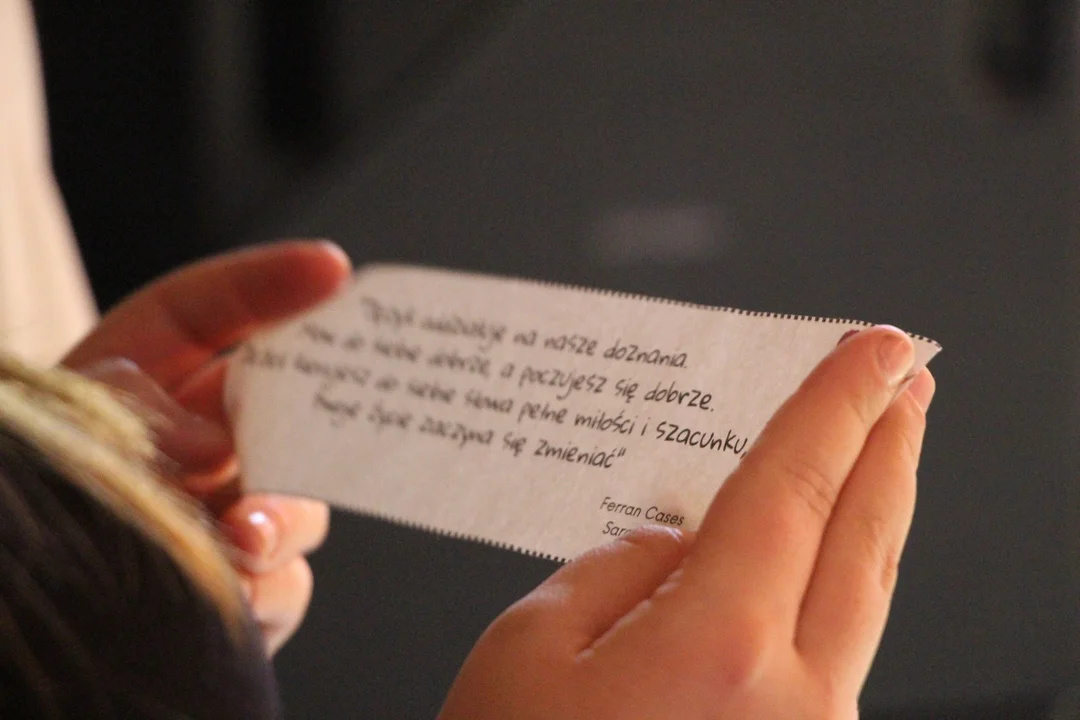 na nasze doznania.
do siebie dobrze, a poczujesz się dobrze.
kierujesz do siebie słowa pełne miłości i szacunku,
Twoje życie zaczyna się zmieniać"
Ferran Cases